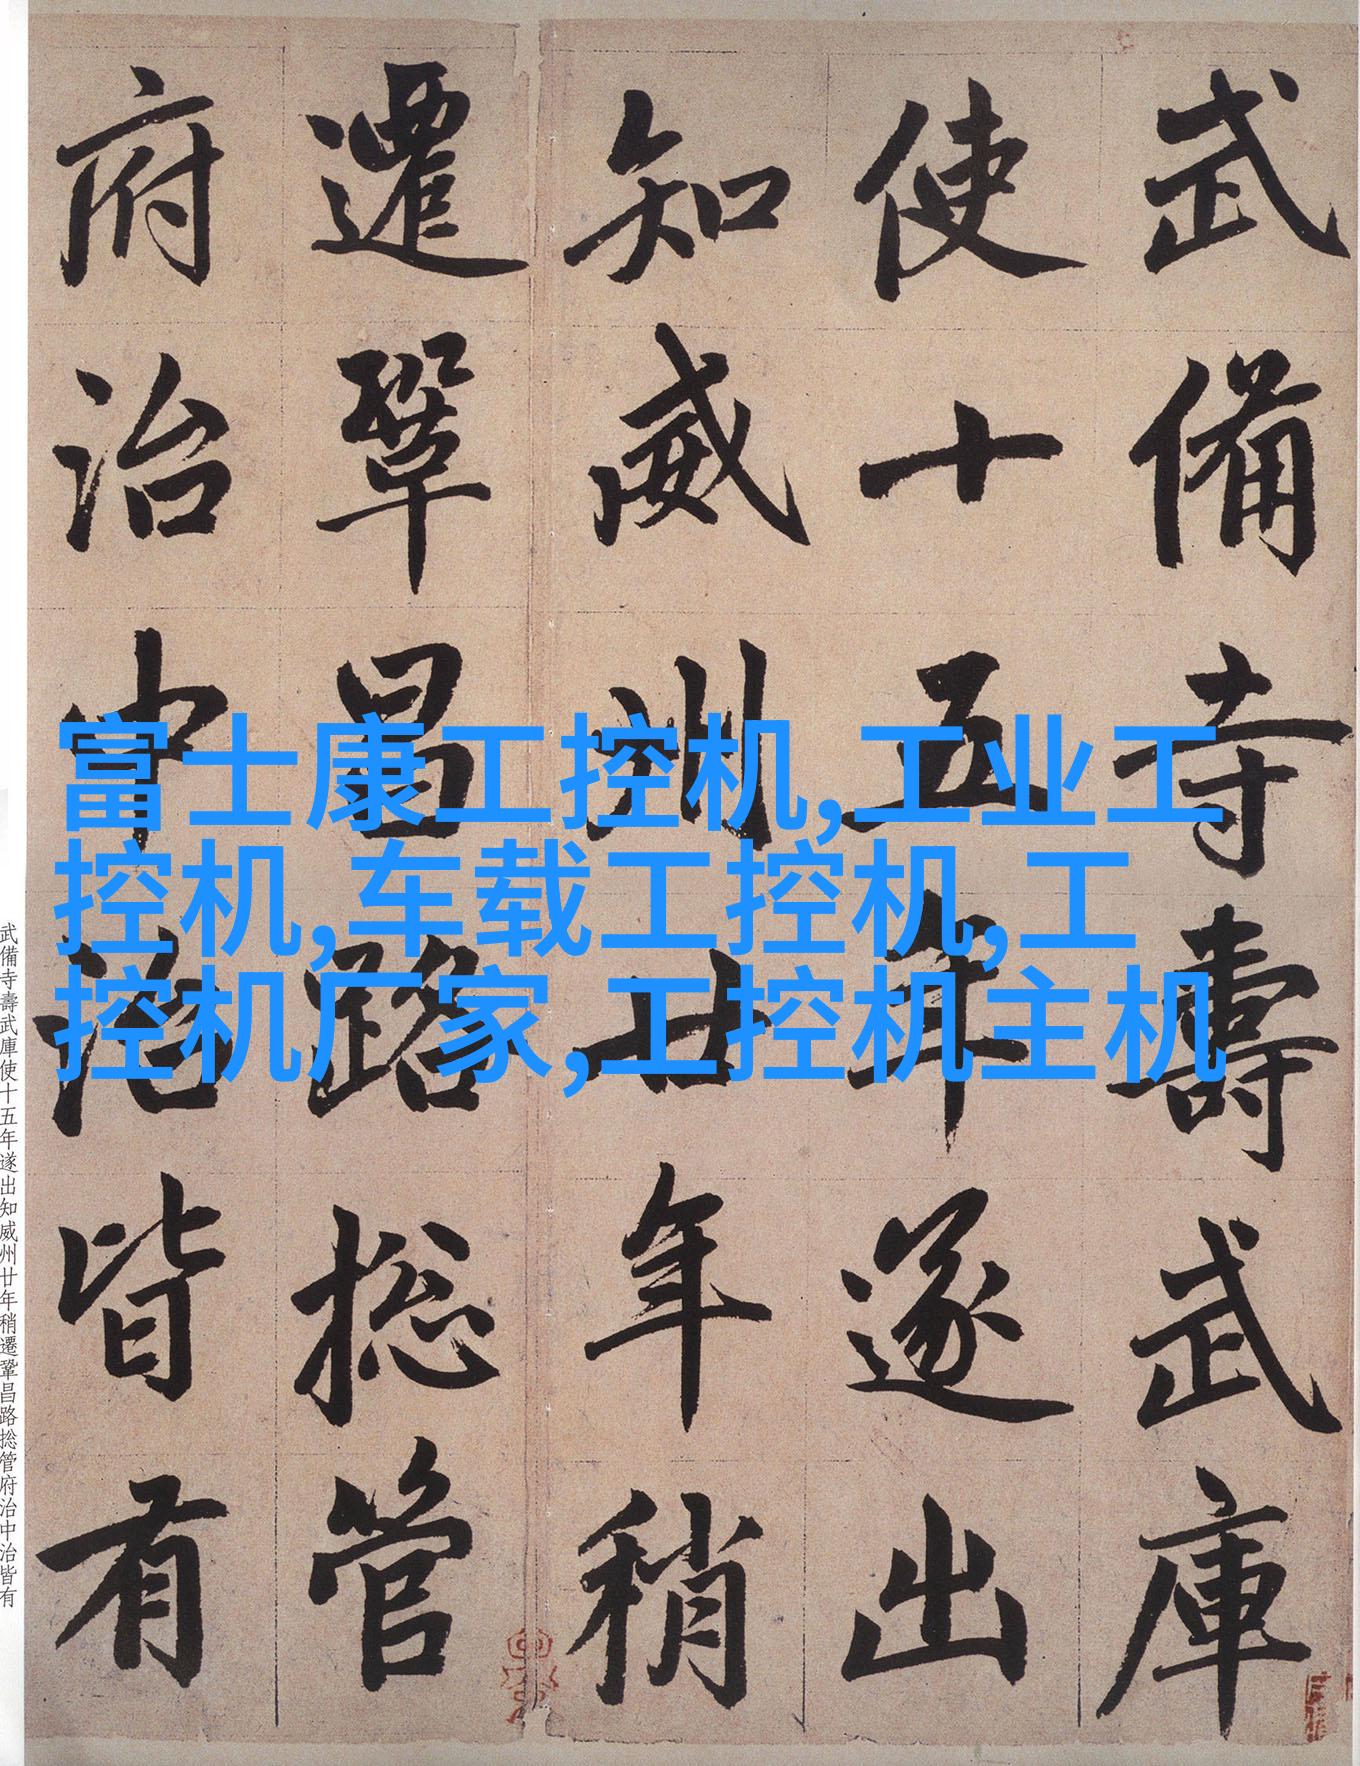 武備寺壽武庫
使十五年遂出
知威州廿年稍
遷鞏昌路捴管
府治中治皆有
富士康工控机,工业工
控机,车载工控机,工
控机厂家,工控机主机
武備寺壽武庫使十五年遂出知威州廿年稍遷鞏昌路捴管府治中治皆有